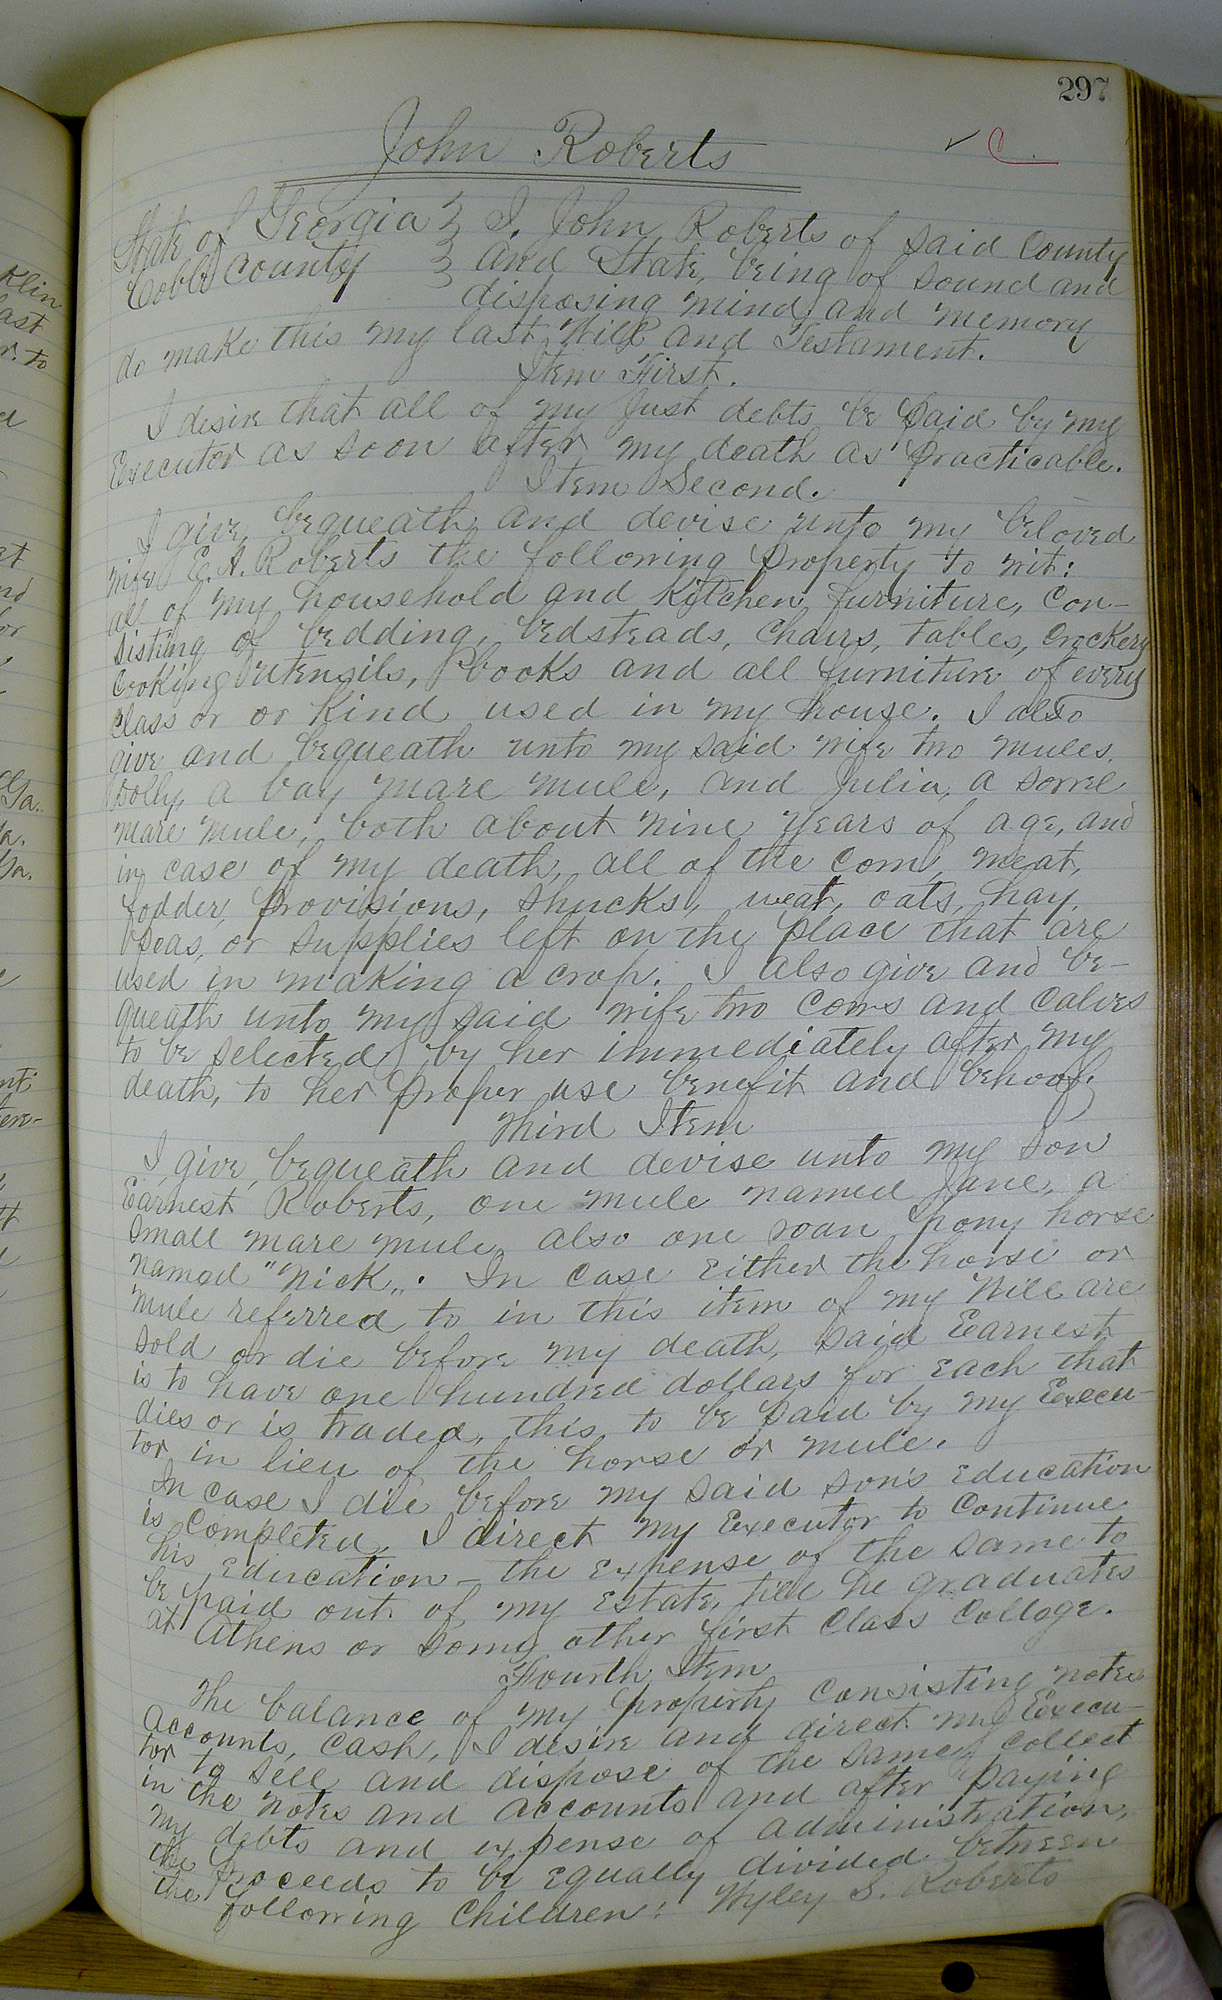 297
John Roberts
✓ C
State of Georgia } I, John Roberts of said County
Cobb County } and State, being of sound and
disposing mind and memory
do make this my last Will and Testament.
Item First.
I desire that all of my just debts be paid by my
Executor as soon after my death as practicable.
Item Second.
I give, bequeath and devise unto my beloved
wife E. A. Roberts the following property to wit:
all of my household and kitchen furniture, con-
sisting of bedding, bedsteads, chairs, tables, crockery
cooking utensils, books and all furniture of every
class or or kind used in my house. I also
give and bequeath unto my said wife two mules,
Dolly, a bay mare mule, and Julia, a sorrel
mare mule, both about nine years of age, and
in case of my death, all of the corn, meat,
fodder, provisions, shucks, weat, oats, hay,
peas, or supplies left on the place that are
used in making a crop. I also give and be-
queath unto my said wife two cows and calves
to be selected by her immediately after my
death, to her proper use benefit and behoof.
Third Item
I give, bequeath and devise unto my son
Earnest Roberts, one mule named Jane, a
small mare mule, also one roan pony horse
named "Nick". In case either the horse or
mule referred to in this item of my Will are
sold or die before my death, said Earnest
is to have one hundred dollars for each that
dies or is traded, this to be paid by my Execu-
tor in lieu of the horse or mule.
In case I die before my said son's education
is completed, I direct my Executor to continue
his education - the expense of the same to
be paid out of my estate, till he graduates
at Athens or some other first class college.
Fourth Item
The balance of my property consisting notes
accounts, cash, I desire and direct my Execu-
tor to sell and dispose of the same, collect
in the notes and accounts and after paying
my debts and expense of administration,
the proceeds to be equally divided between
the following children: Wyley S. Roberts
klin
ast
r. to
Ga.